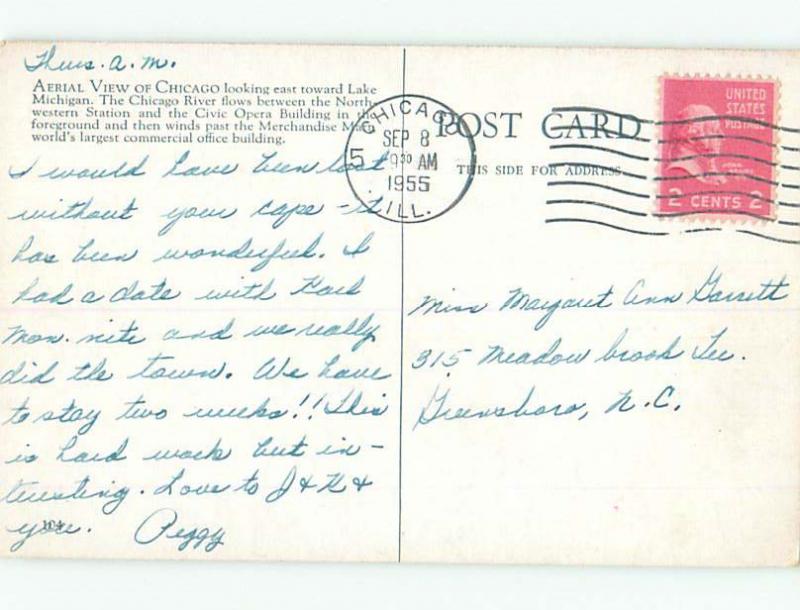 Thurs. a.m.
AERIAL VIEW OF CHICAGO looking east toward Lake
Michigan. The Chicago River flows between the North-
western Station and the Civic Opera Building in the
foreground and then winds past the Merchandise
world's largest commercial office building.
I would have been lost
without your cape - it
has been wonderful. I
had a date with
Mon. nite and we really
did the town. We have
to stay two weeks!! This
is hard work but in-
teresting. Love to J & H &
you. Peggy
CHICAGO
SEP 8
9 30 AM
1955
ILL.
5
POST CARD
THIS SIDE FOR ADDRESS
UNITED
STATES
POSTAGE
2 CENTS 2
Miss Margaret Ann Garrett
315 Meadowbrook Ter.
Greensboro, N.C.